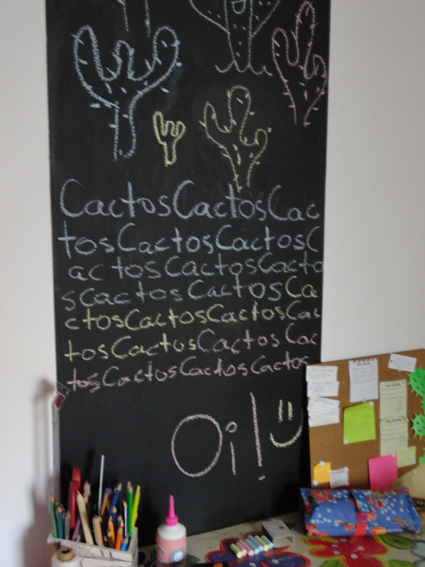 CactosCactosCac
tosCactosCactosC
actosCactosCacto
sCactosCactosCa
ctosCactosCactosCac
tosCactosCactosCac
tosCactosCactosCactos
Oi! =)